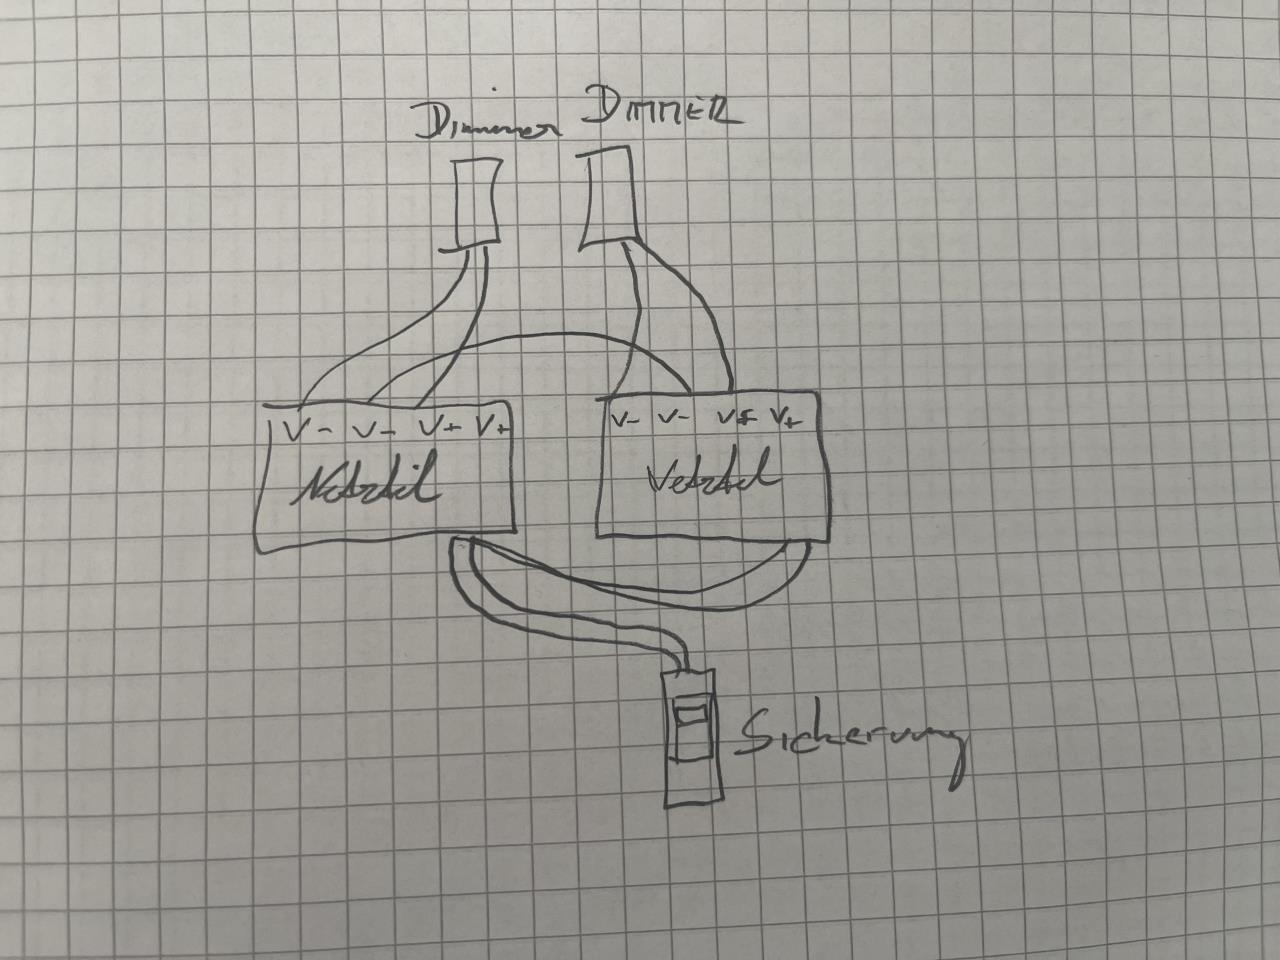 Dimmer DIMMER
V- V- V+ V+ V- V- V+ V+
Netzteil Netzteil
Sicherung